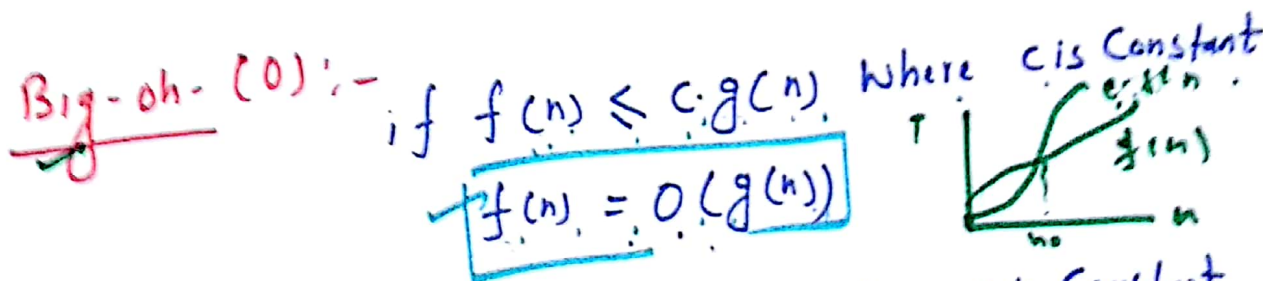 Big-oh- (O) :- if f(n) ≤ c.g(n) Where c is Constant
f(n) = O(g(n))
T
f(n)
n₀
n
Constant